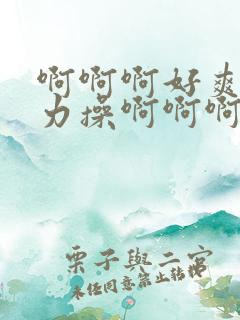 啊啊啊好爽
力操啊啊啊
栗子與二宮
未任同意禁止轉載